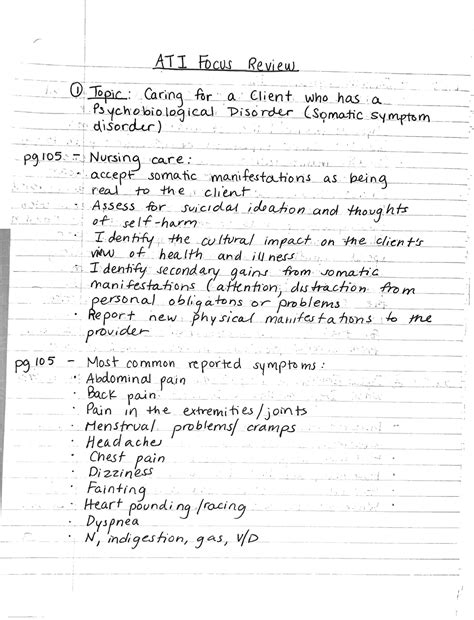 ATI Focus Review
① Topic: Caring for a Client who has a
Psychobiological Disorder (Somatic symptom
disorder)
pg105 - Nursing care:
· accept somatic manifestations as being
real to the client
· Assess for suicidal ideation and thoughts
of self-harm
· Identify the cultural impact on the client's
view of health and illness
· Identify secondary gains from somatic
manifestations (attention, distraction from
personal obligatons or problems
· Report new physical manifestations to the
provider
pg105 - Most common reported symptoms:
· Abdominal pain
· Back pain
· Pain in the extremities/joints
· Menstrual problems/cramps
· Headaches
· Chest pain
· Dizziness
· Fainting
· Heart pounding/racing
· Dyspnea
· N, indigestion, gas, V/D